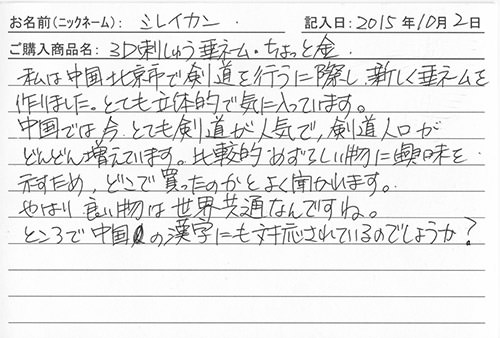 お名前(ニックネーム): シレイカン 記入日:2015年10月2日
ご購入商品名: 3D刺しゅう垂ネーム・ちょっと金
私は中国北京市で剣道を行うに際し、新しく垂ネームを
作りました。とても立体的で気に入っています。
中国では今とても剣道が人気で、剣道人口が
どんどん増えています。比較的めずらしい物に興味を
示すため、どこで買ったのかとよく聞かれます。
やはり良い物は世界共通なんですね。
ところで中国の漢字にも対応されているのでしょうか?